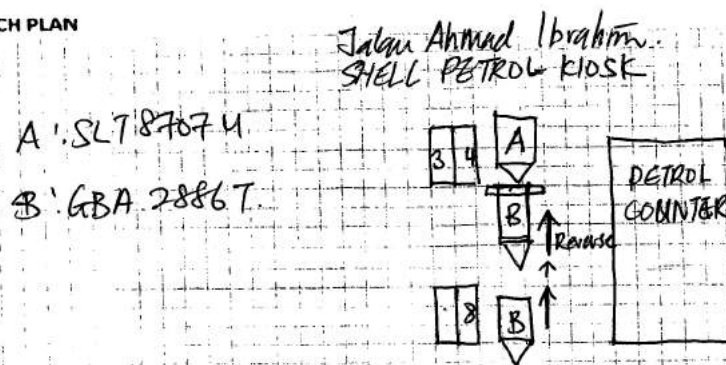 CH PLAN
Jalan Ahmad Ibrahim.
SHELL PETROL KIOSK
A: SLT 8707 U
B: GBA 2886 T.
3 4
A
B
Reverse
PETROL
COUNTER
8
B